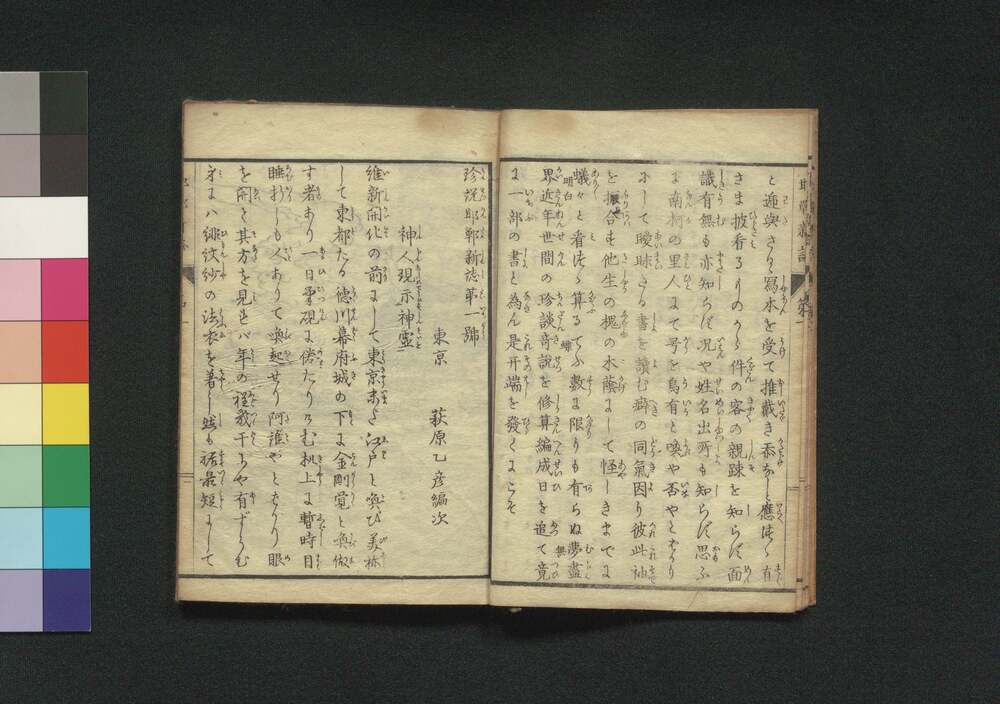 と逓與さり寫本を受て推戴き忝なしと應つゝ有
さま披看るものから件の容の親踈を知らず面
識有無も亦知らず况や姓名出所も知らず思ふ
に南柯の里人にて号を烏有と喚や否やとばかり
にして曖昧たる書を讀む癖の同氣因り彼此袖
を振合も他生の槐の木蔭にして怪しきまでに
蟻々と看つゝ算るてふ數は限りも有らぬ夢盡
界近年世間の珍談奇說を修算編成日を追て竟
に一部の書と為ん是开端を發くにこそ
珍説邯鄲新誌第一號
東京 萩原乙彦編次
神人現示神霊
維新開化の前にして東京未だ江戸と喚び美称
して東都たる徳川幕府城の下に金剛覚と喚做
す者あり一日筆硯に倦たりけむ机上に暫時目
睡折しも人ありて喚起せり阿誰やとばかり眼
を開き其方を見れバ年の程数千とや有ずらむ
身にハ緋紋紗の法衣を着し然も裾最短にして